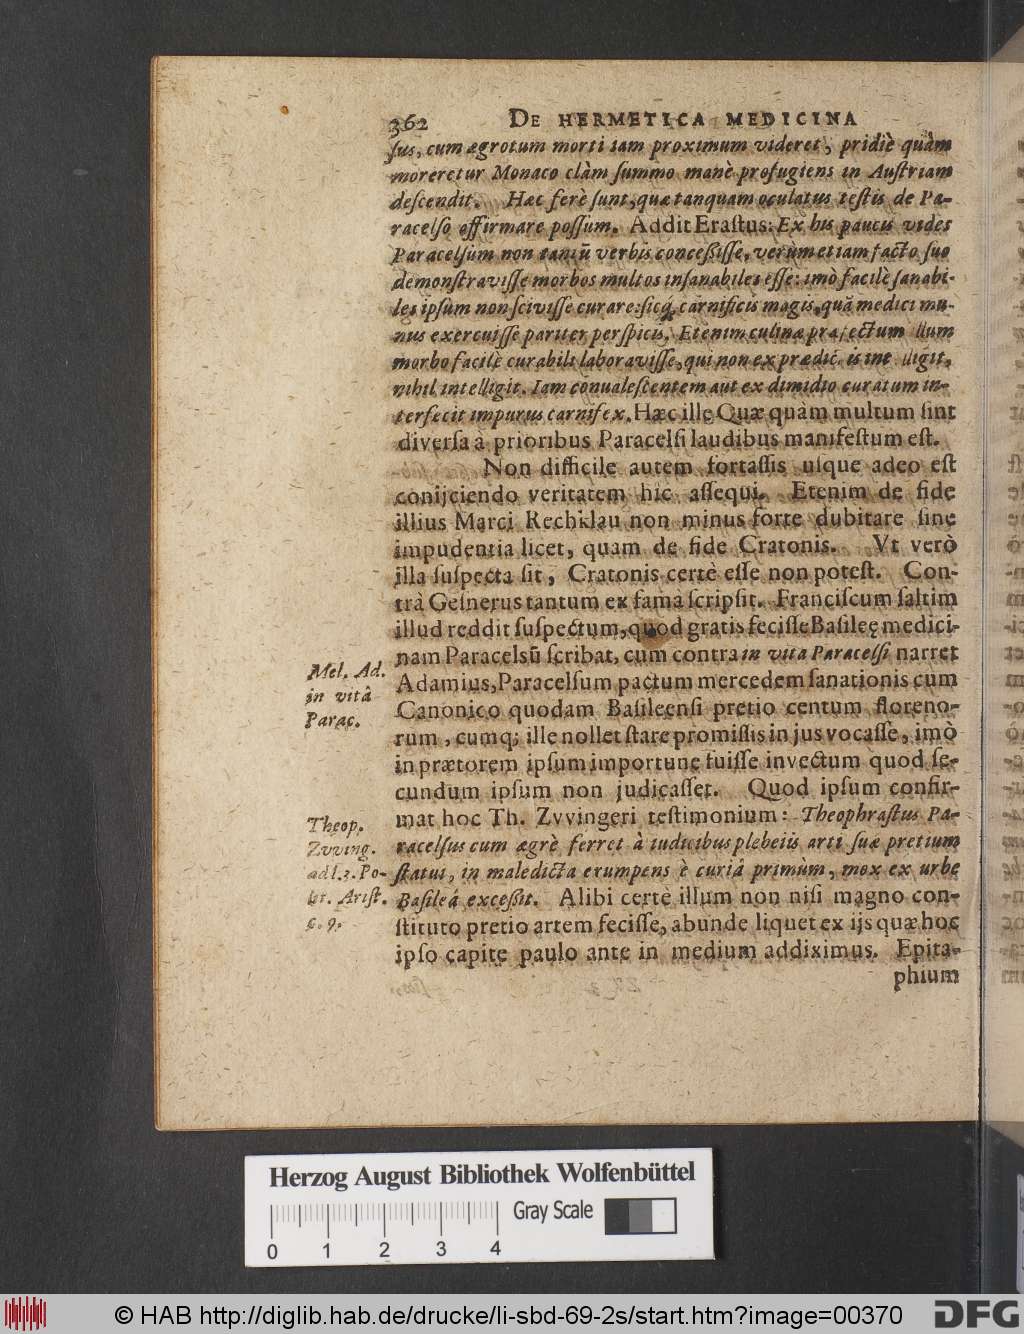 362 DE HERMETICA MEDICINA
ſus, cum ægrotum morti iam proximum videret, pridiè quàm
moreretur Monaco clàm ſummo manè profugiens in Auſtriam
deſcendit. Hæc ferè ſunt, quæ tanquam oculatus teſtis de Pa-
racelſo affirmare poſſum. Addit Eraſtus: Ex his paucis vides
Paracelſum non tantū verbis conceſſiſſe, verùm etiam facto ſuo
demonſtraviſſe morbos multos inſanabiles eſſe: imò facilè ſanabi-
les ipſum non ſciviſſe curare: ſicq́; carnificis magis, quā medici mu-
nus exercuiſſe pariter perſpicis. Etenim culinæ præfectum illum
morbo facilè curabili laboraviſſe, qui non ex prædic is int lligit,
nihil intelligit. Iam conualeſcentem aut ex dimidio curatum in-
terfecit impurus carnifex. Hæc ille Quæ quàm multum ſint
diverſa à prioribus Paracelſi laudibus manifeſtum eſt.
Non difficile autem fortaſſis uſque adeo eſt
conijciendo veritatem hic aſſequi. Etenim de fide
illius Marci Rechklau non minus forte dubitare ſine
impudentia licet, quam de fide Cratonis. Vt verò
illa ſuſpecta ſit, Cratonis certè eſſe non poteſt. Con-
trà Geſnerus tantum ex fama ſcripſit. Franciſcum ſaltim
illud reddit ſuſpectum, quod gratis feciſſe Baſileę medici-
nam Paracelsū ſcribat, cum contra in vita Paracelſi narret
Mel. Ad.
in vitâ
Parac.
Adamius, Paracelſum pactum mercedem ſanationis cum
Canonico quodam Baſileenſi pretio centum floreno-
rum, cumq; ille nollet ſtare promiſſis in jus vocaſſe, imò
in prætorem ipſum importune fuiſſe invectum quod ſe-
cundum ipſum non judicaſſet. Quod ipſum confir-
mat hoc Th. Zvvingeri teſtimonium: Theophraſtus Pa-
racelſus cum ægrè ferret à iudicibus plebeiis arti ſuæ pretium
ſtatui, in maledicta erumpens è curiâ primùm, mox ex urbe
Baſileâ exceſſit. Alibi certè illum non niſi magno con-
Theop.
Zvving.
ad l. 3. Po-
lit. Ariſt.
c. 9.
ſtituto pretio artem feciſſe, abunde liquet ex ijs quæ hoc
ipſo capite paulo ante in medium addiximus. Epita-
phium
Herzog August Bibliothek Wolfenbüttel
Gray Scale
0 1 2 3 4
© HAB http://diglib.hab.de/drucke/li-sbd-69-2s/start.htm?image=00370
DFG